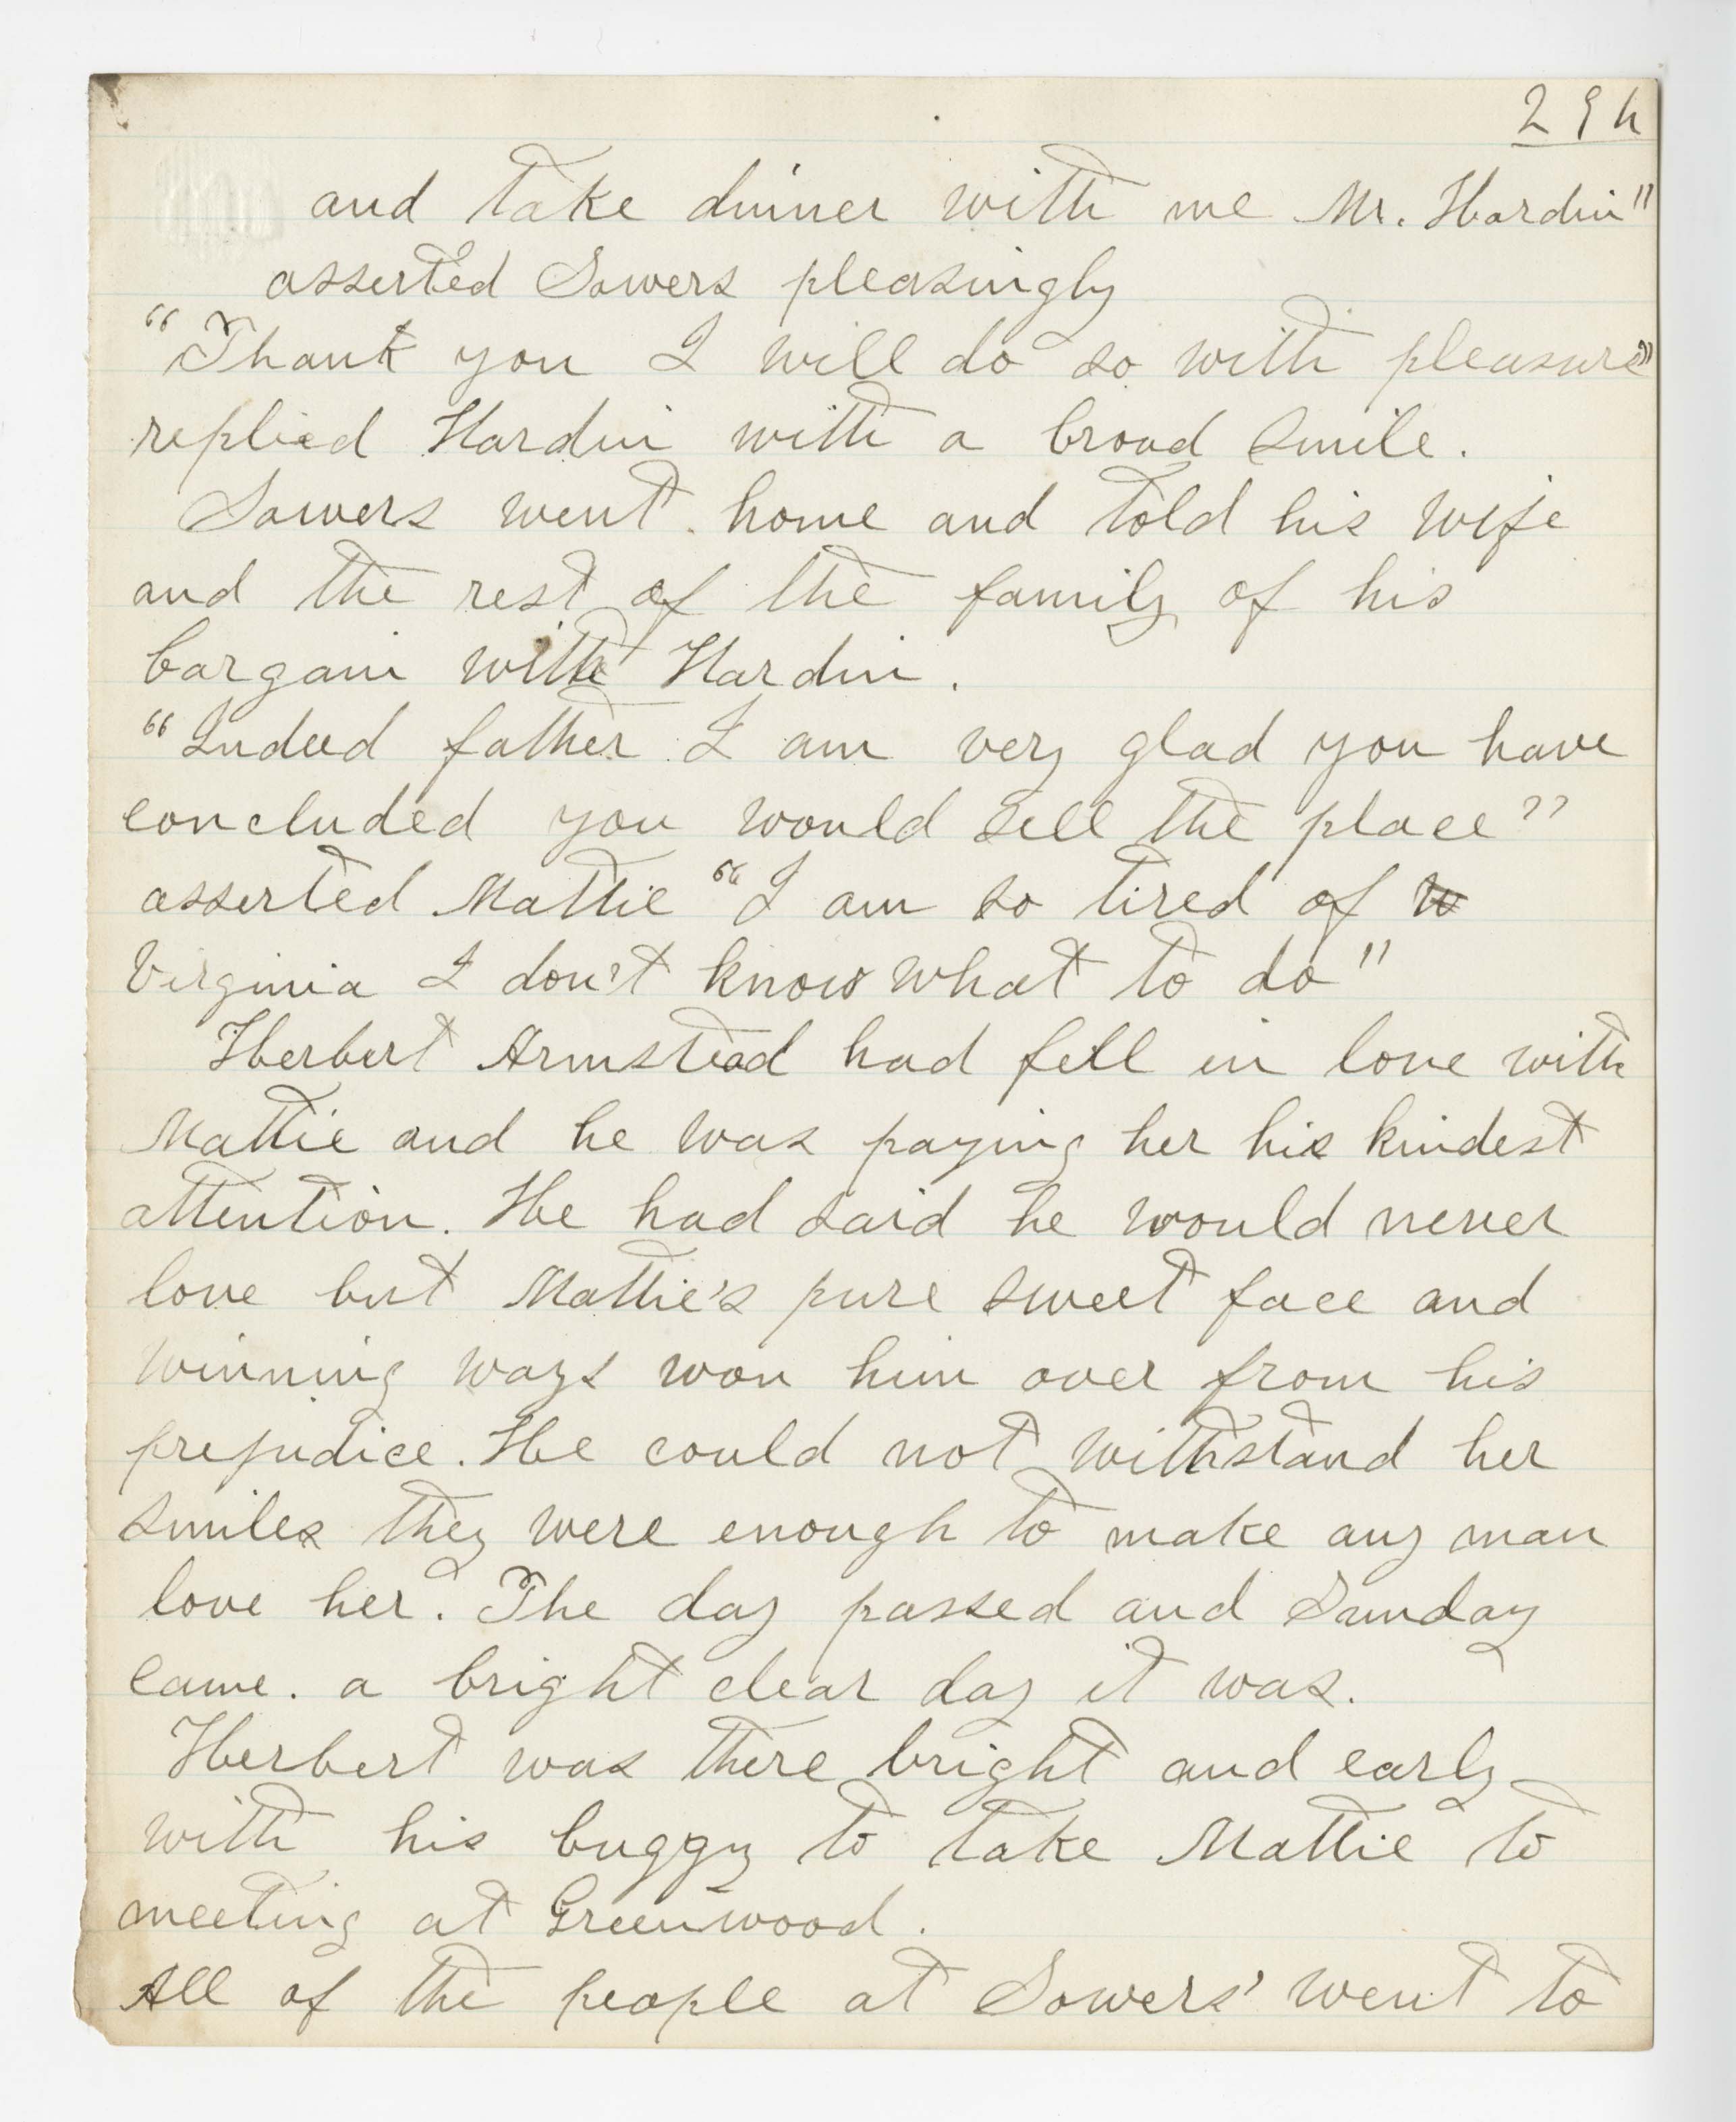 294
and take dinner with me Mr. Hardin"
asserted Sowers pleasingly
"Thank you I will do so with pleasure"
replied Hardin with a broad smile.
Sowers went home and told his wife
and the rest of the family of his
bargain with Hardin.
"Indeed father I am very glad you have
concluded you would sell the place"
asserted Mattie "I am so tired of
Virginia I don't know what to do"
Herbert Armstead had fell in love with
Mattie and he was paying her his kindest
attention. He had said he would never
love but Mattie's pure sweet face and
winning ways won him over from his
prejudice. He could not withstand her
smiles they were enough to make any man
love her. The day passed and Sunday
came. a bright clear day it was.
Herbert was there bright and early
with his buggy to take Mattie to
meeting at Greenwood.
All of the people at Sowers' went to